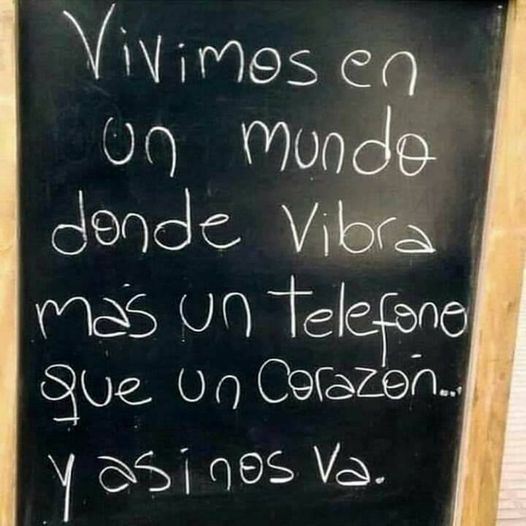 Vivimos en
un mundo
donde vibra
más un telefono
que un Corazón...
y asi nos va.